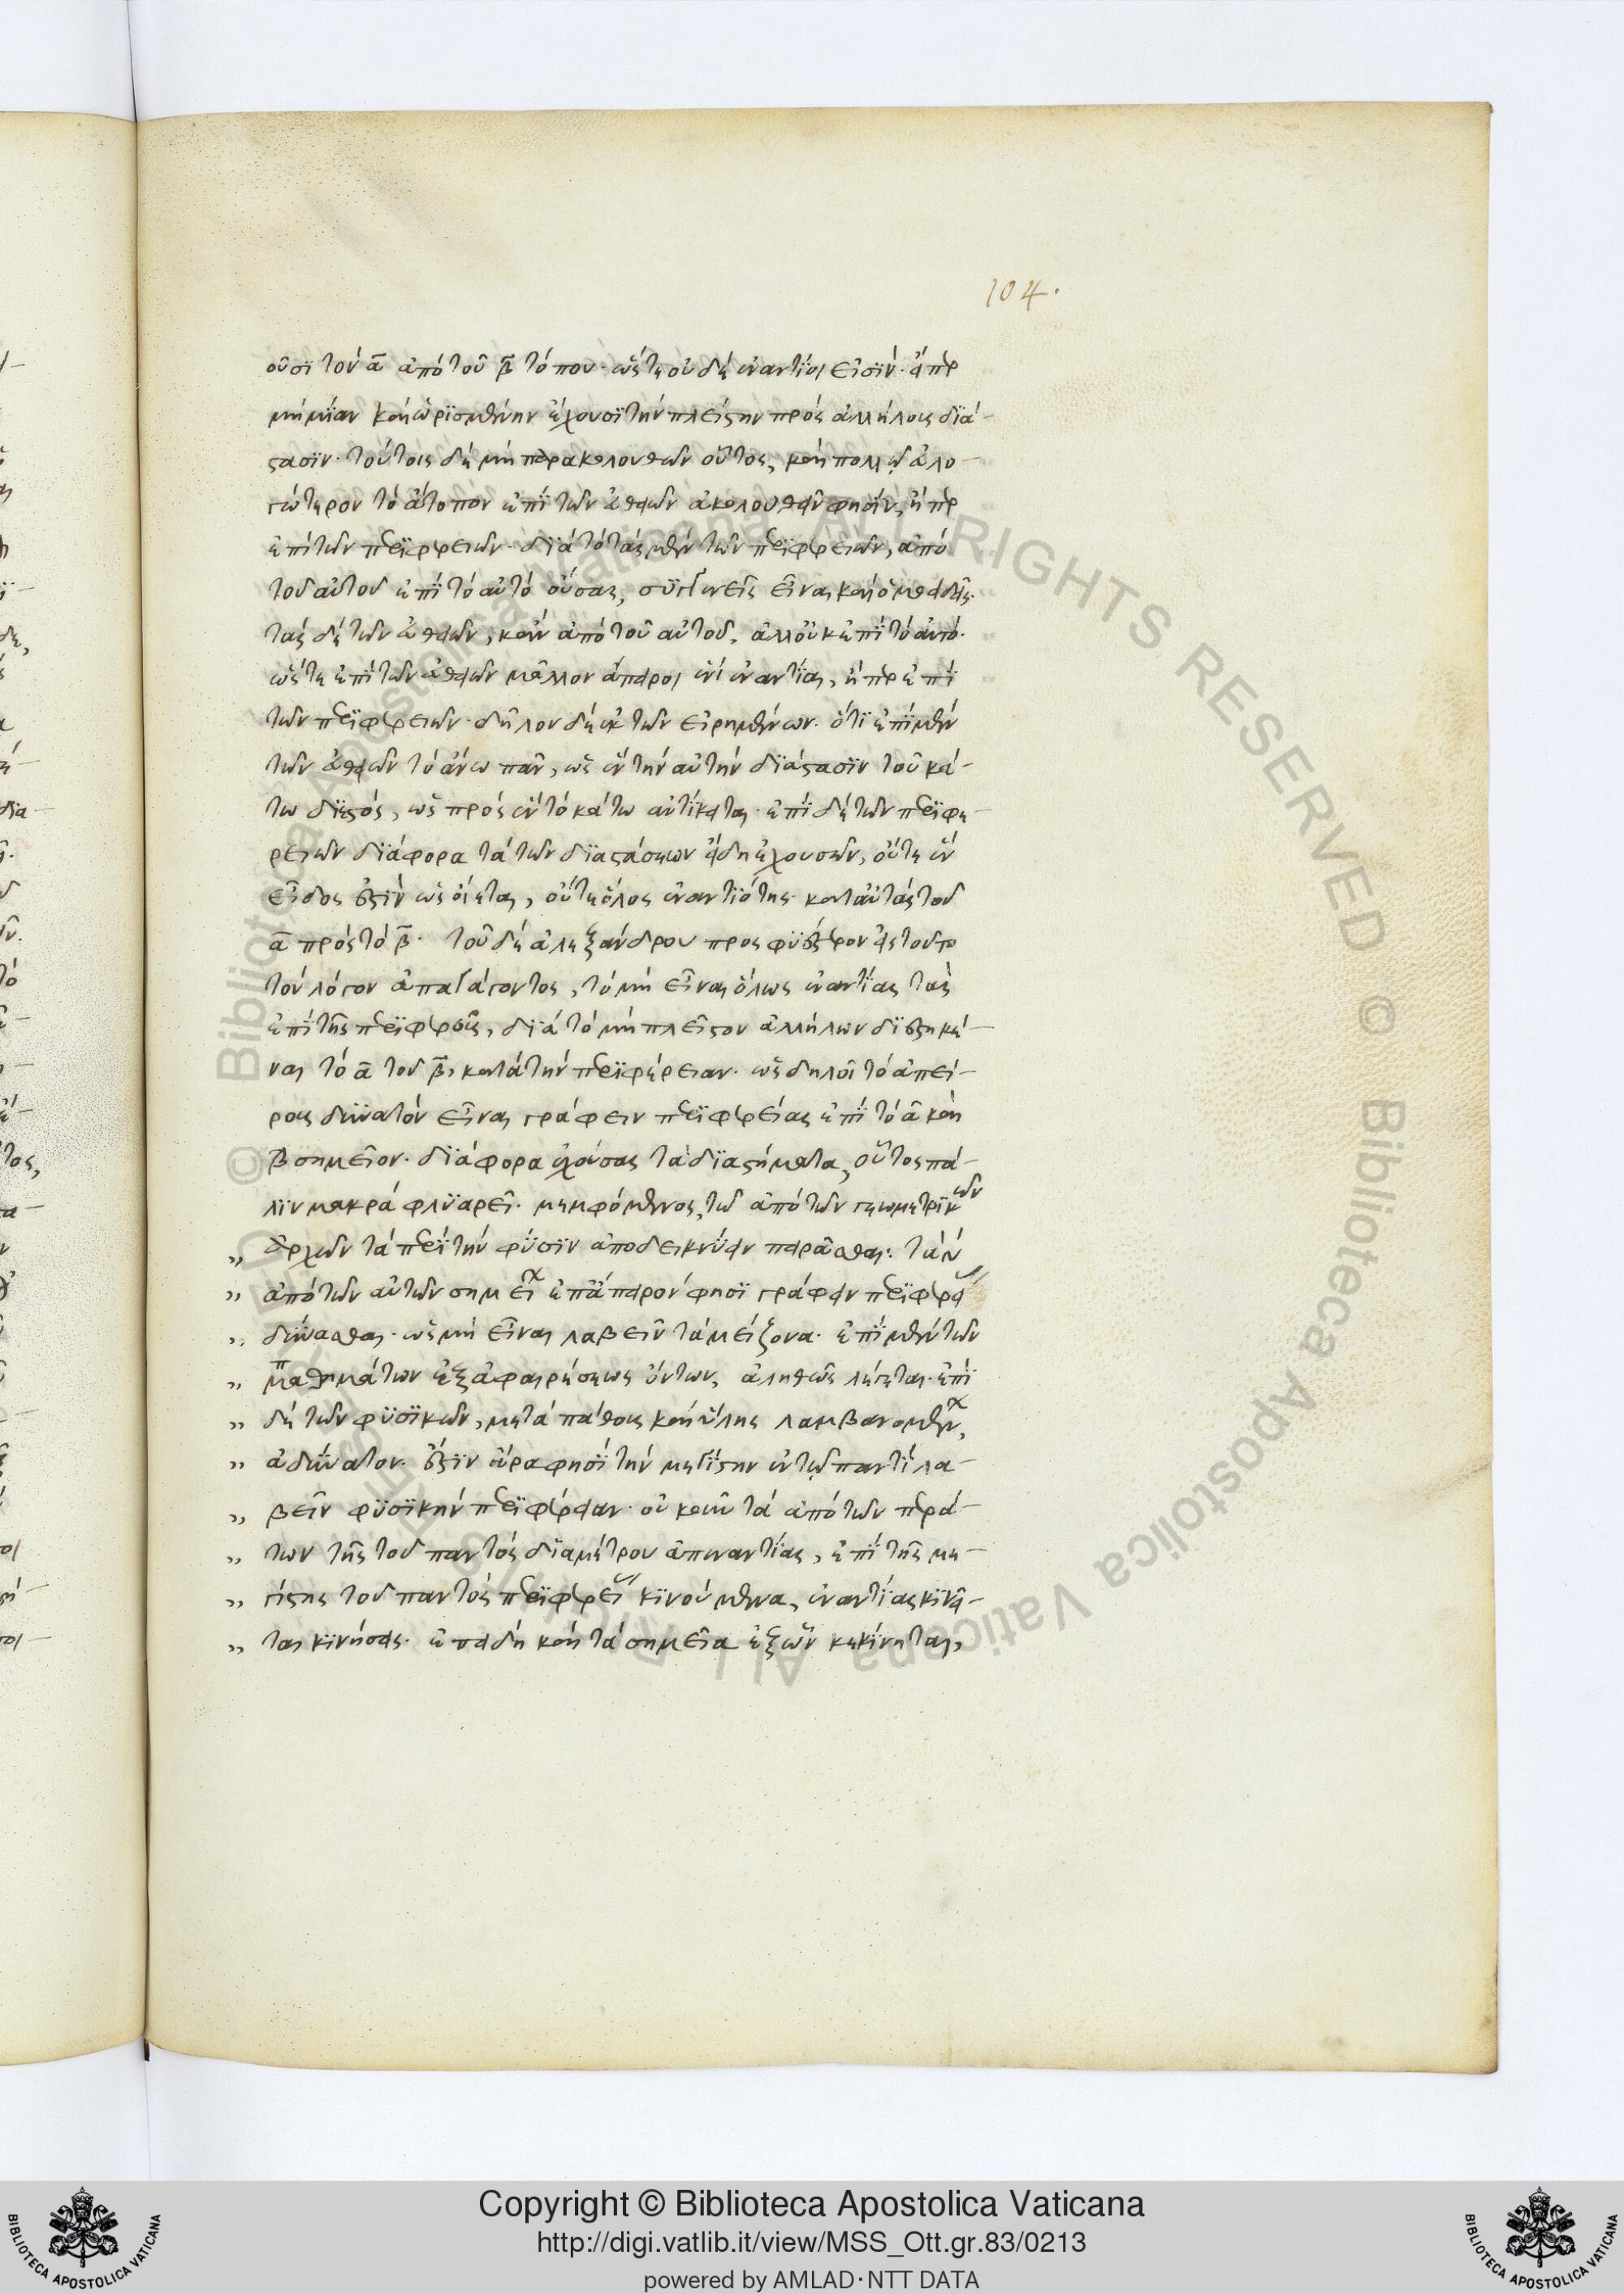 104.
οὖσι τὸν ᾱ ἀπὸ τοῦ β̄ τόπου· ὥστε οὐδὲ ἐναντίοι εἰσὶν· εἴπερ
μὴ μίαν καὶ ὡρισμένην ἔχουσι τὴν πλείστην πρὸς ἀλλήλους διά-
στασιν· τούτοις δὲ μὴ παρακολουθῶν οὗτος, καὶ πολλῷ ἀλο-
γώτερον τὸ ἄτοπον ἐπὶ τῶν εὐθειῶν ἀκολουθεῖν φησίν, ἤπερ
ἐπὶ τῶν περιφερειῶν· διὰ τὸ τὰς μὲν τῶν περιφερειῶν, ἀπὸ
τοῦ αὐτοῦ ἐπὶ τὸ αὐτὸ οὔσας, συγγενεῖς εἶναι καὶ ὁμοειδεῖς·
τὰς δὲ τῶν εὐθειῶν, κἂν ἀπὸ τοῦ αὐτοῦ, ἀλλ' οὐκ ἐπὶ τὸ αὐτό·
ὥστε ἐπὶ τῶν εὐθειῶν μᾶλλον ἄπειροι ἑνὶ ἐναντίαι, ἤπερ ἐπὶ
τῶν περιφερειῶν· δῆλον δὲ ἐκ τῶν εἰρημένων· ὅτι ἐπὶ μὲν
τῶν εὐθειῶν τὸ ἄνω πᾶν, ὡς ἓν τὴν αὐτὴν διάστασιν τοῦ κά-
τω διεστός, ὡς πρὸς ἓν τὸ κάτω ἀντίκειται· ἐπὶ δὲ τῶν περιφε-
ρειῶν διάφορα τὰ τῶν διαστάσεων εἴδη ἐχουσῶν, οὔτε ἓν
εἶδος ἐστὶν ὡς οἴεται, οὔτε ὅλος ἐναντιότης κατ' αὐτὰς τοῦ
ᾱ πρὸς τὸ β̄· τοῦ δὲ ἀλεξάνδρου προσφυέστερον εἰς τοῦτο
τὸν λόγον ἀπαγάγοντος, τὸ μὴ εἶναι ὅλως ἐναντίας τὰς
ἐπὶ τῆς περιφερείας, διὰ τὸ μὴ πλεῖστον ἀλλήλων διεστηκέ-
ναι τὸ ᾱ τοῦ β̄, κατὰ τὴν περιφέρειαν· ὡς δηλοῖ τὸ ἀπεί-
ρους δυνατὸν εἶναι γράφειν περιφερείας ἐπὶ τὸ ᾱ καὶ
β̄ σημεῖον· διάφορα ἐχούσας τὰ διαστήματα, οὗτος πά-
λιν μακρὰ φλυαρεῖ· μεμφόμενος, τῷ ἀπὸ τῶν γεωμετρικῶν
„ ἀρχῶν τὰ περὶ τὴν φύσιν ἀποδεικνύειν πειρᾶσθαι·
„ ἀπὸ τῶν αὐτῶν σημείων ἐπ' ἄπειρόν φησι γράφειν περιφερείας
„ δύνασθαι· ὡς μὴ εἶναι λαβεῖν τὰ μείζονα· ἐπὶ μὲν τῶν
„ μαθημάτων ἐξ ἀφαιρέσεως ὄντων, ἀληθῶς λέγεται· ἐπὶ
„ δὲ τῶν φυσικῶν, μετὰ πάθους καὶ ὕλης λαμβανομένων,
„ ἀδύνατον· ἔστιν ἄρα φησὶ τὴν μεγίστην ἐν τῷ παντὶ λα-
„ βεῖν φυσικὴν περιφέρειαν· οὐκοῦν τὰ ἀπὸ τῶν περά-
„ των τῆς τοῦ παντὸς διαμέτρου ἀπεναντίας, ἐπὶ τῆς με-
„ γίστης τοῦ παντὸς περιφερείας κινούμενα, ἐναντίας κινεῖ-
„ ται κινήσεις· ἐπειδὴ καὶ τὰ σημεῖα ἐξ ὧν κεκίνηται,
Copyright © Biblioteca Apostolica Vaticana
http://digi.vatlib.it/view/MSS_Ott.gr.83/0213
powered by AMLAD·NTT DATA
BIBLIOTECA APOSTOLICA VATICANA
BIBLIOTECA APOSTOLICA VATICANA